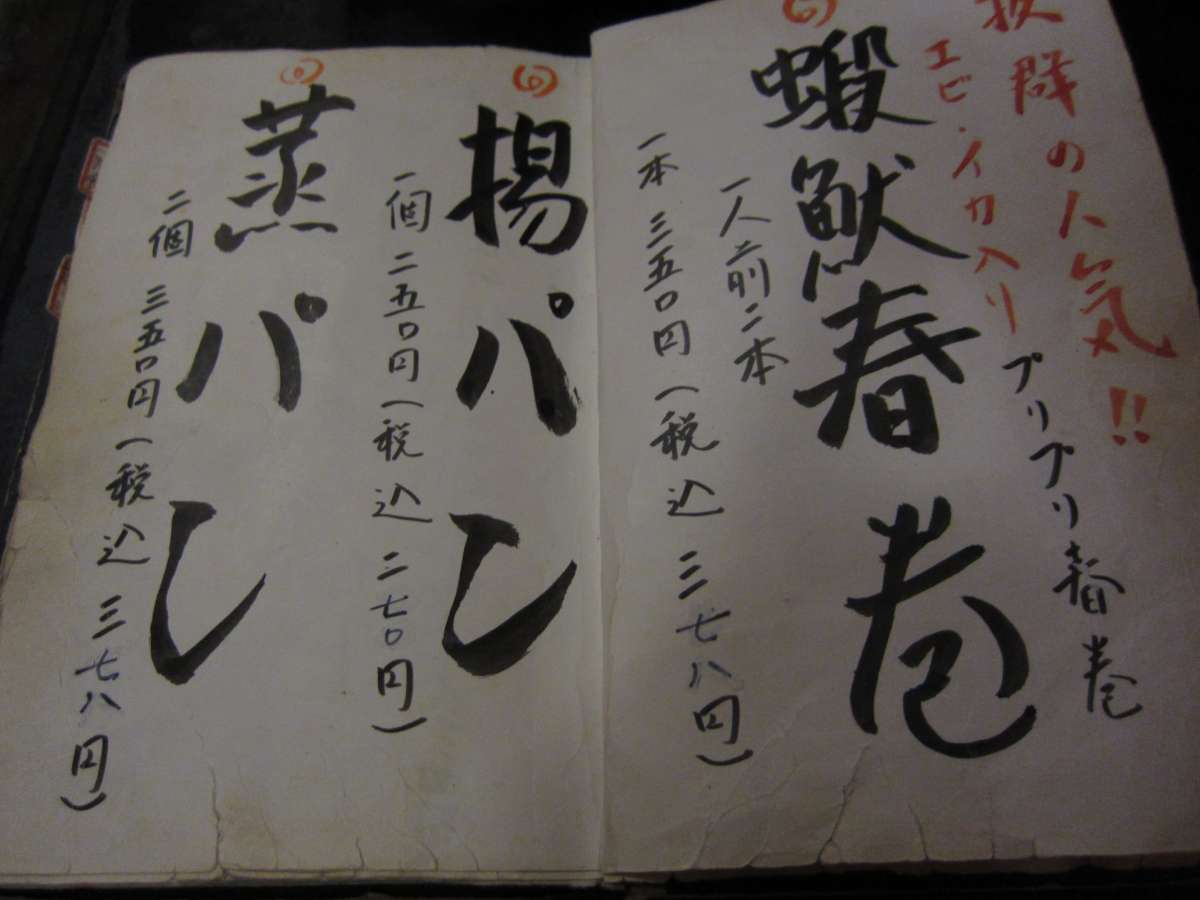 抜群の人気!!
エビ・イカ入り プリプリ春巻
蝦魷春巻
一人前二本
一本 三五〇円(税込三七八円)
揚パン
一個 二五〇円(税込二七〇円)
蒸パン
二個 三五〇円(税込三七八円)